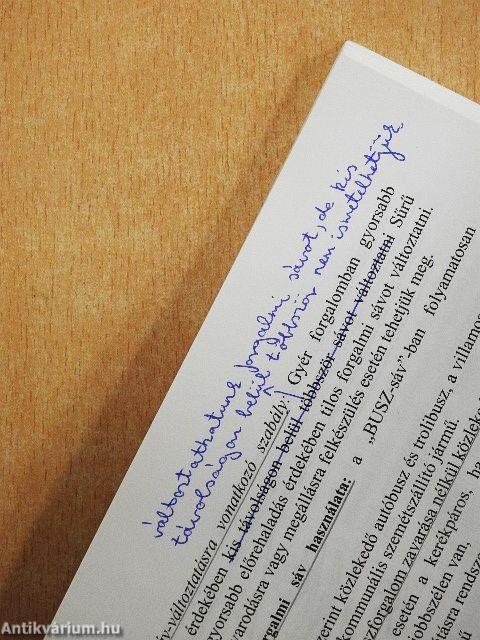 változtathatunk forgalmi sávot, de kis
távolságon belül többször nem ismételhetjük
-változtatásra vonatkozó szabály: Gyér forgalomban gyorsabb
érdekében kis távolságon belül többször sávot változtatni Sűrű
gyorsabb előrehaladás érdekében tilos forgalmi sávot változtatni.
varodásra vagy megállásra felkészülés esetén tehetjük meg.
rgalmi sáv használata: a „BUSZ-sáv”-ban folyamatosan
erint közlekedő autóbusz és trolibusz, a villamos
ommunális szemétszállító jármű.
forgalom zavarása nélkül közleke
esetén a kerékpáros, ha
többszélen van,
ásra rendsze
Antikvárium.hu